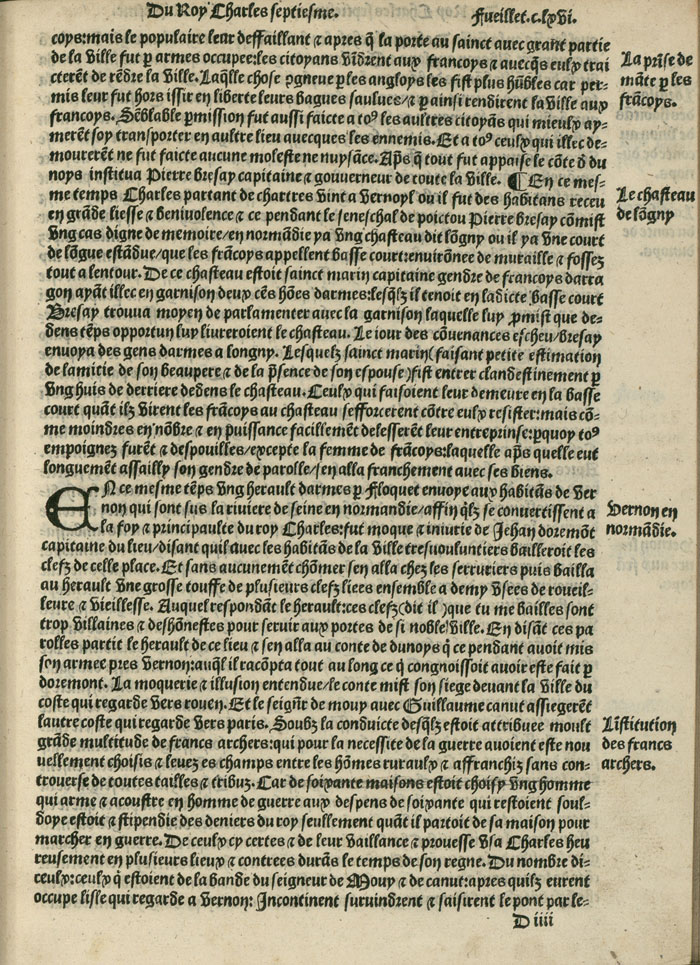 Du Roy Charles septiesme. Fueillet.c.lxvi.
coys:mais le populaire leur deffaillant ⁊ apres q̃ la porte au sainct avec grant partie
de la ville fut p armes occupee:les citoyans vĩdrent aux francoys ⁊ avecq̃s eulx trai
cterẽt de rẽdre la ville. Laq̃lle chose ꝯgneue p les angloys les fist plus hũbles car per-
mis leur fut hors issir en liberte leurs bagues saulves/⁊ p ainsi rendirent la ville aux
francoys. Sẽblable pmission fut aussi faicte a toꝰ les aultres citoyãs qui mieulx ay-
merẽt soy transporter en aultre lieu avecques les ennemis. Et a toꝰ ceulx qui illec de-
mourerẽt ne fut faicte aucune moleste ne nuysãce. Aps̃ q̃ tout fut appaise le cõte d̃ du
noys institua Pierre bresay capitaine ⁊ gouverneur de toute la ville. ¶ En ce mes-
me temps Charles partant de chartres vint a Vernoyl ou il fut des habitans receu
en grãde liesse ⁊ benivolence ⁊ ce pendant le seneschal de poictou Pierre bresay cõmist
ung cas digne de memoire/en normãdie ya ung chasteau dit lõgny ou il ya une court
de lõgue estãdue/que les frãcoys appellent basse court:environẽe de muraille ⁊ fossez
tout a lentour. De ce chasteau estoit sainct marin capitaine gendre de francoys darra
gon ayãt illec en garnison deux cẽs hões darmes:lesq̃lz il tenoit en ladicte basse court
Bresay trouva moyen de parlamenter avec la garnison laquelle luy pmist que de-
dens tẽps opportun luy livreroient le chasteau. Le iour des cõvenances escheu/bresay
envoya des gens darmes a longny. Lesquelz sainct marin(faisant petite estimation
de lamitie de son beaupere ⁊ de la pñsence de son espouse)fist entrer clandestinement p
ung huis de derriere dedens le chasteau. Ceulx qui faisoient leur demeure en la basse
court quãt ilz virent les frãcoys au chasteau sefforcerent cõtre eulx resister:mais cõ-
me moindres en nõbre ⁊ en puissance facillemẽt delesserẽt leur entreprinse:pquoy toꝰ
empoignez furẽt ⁊ despouilles/excepte la femme de frãcoys:laquelle aps̃ quelle eut
longuemẽt assailly son gendre de parolle/sen alla franchement avec ses biens.
EN ce mesme tẽps ung herault darmes p Floquet envoye aux habitãs de Ver
non qui sont sus la riviere de seine en normãdie/affin q̃lz se convertissent a
la foy ⁊ principaulte du roy Charles:fut moque ⁊ iniurie de Jehan doremõt
capitaine du lieu/disant quil avec les habitãs de la ville tresvouluntiers bailleroit les
clefz de celle place. Et sans aucunemẽt chõmer sen alla chez les serruriers puis bailla
au herault une grosse touffe de plusieurs clefz liees ensemble a demy usees de roueil-
leure ⁊ vieillesse. Auquel respondãt le herault:ces clefz(dit il)que tu me bailles sont
trop villaines ⁊ deshõnestes pour servir aux portes de si noble ville. En disãt ces pa
rolles partit le herault de ce lieu ⁊ sen alla au conte de dunoys q̃ ce pendant avoit mis
son armee pres Vernon:auq̃l il racõpta tout au long ce q̃ congnoissoit avoir este fait p
doremont. La moquerie ⁊ illusion entendue/le conte mist son siege devant la ville du
coste qui regarde vers rouen. Et le seigñr de mouy avec Guillaume canut assiegerẽt
lautre coste qui regarde vers paris. Soubz la conduicte desq̃lz estoit attribuee moult
grãde multitude de francs archers:qui pour la necessite de la guerre avoient este nou
vellement choisis ⁊ levez es champs entre les hõmes ruraulx ⁊ affranchiz sans con-
troverse de toutes tailles ⁊ tributz. Car de soixante maisons estoit choisy ung homme
qui arme ⁊ acoustre en homme de guerre aux despens de soixante qui restoient soul-
doye estoit ⁊ stipendie des deniers du roy seullement quãt il partoit de sa maison pour
marcher en guerre. De ceulx cy certes ⁊ de leur vaillance ⁊ prouesse usa Charles heu
reusement en plusieurs lieux ⁊ contrees durãs le temps de son regne. Du nombre di-
ceulx:ceulx q̃ estoient de la bande du seigneur de Mouy ⁊ de canut:apres quilz eurent
occupe lisle qui regarde a Vernon: Incontinent survindrent ⁊ saisirent le pont par le-
D iiii
La prĩse de
mãte p les
frãcoys.
Le chasteau
de lõgny
Vernon en
normãdie.
Lĩstitution
des francs
archers.